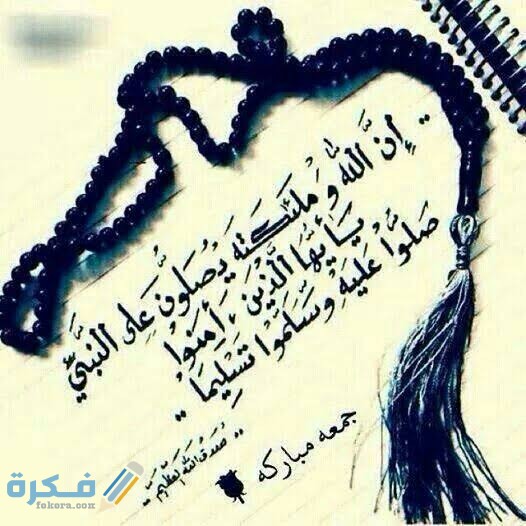 .. إِنَّ اللَّهَ وَمَلَٰئِكَتَهُ يُصَلُّونَ عَلَى النَّبِيِّ
يَٰأَيُّهَا الَّذِينَ ءَامَنُوا
صَلُّوا عَلَيْهِ وَسَلِّمُوا تَسْلِيمًا ..
.. صدق الله العظيم ..
جمعه مباركه
فكرة
fekera.com